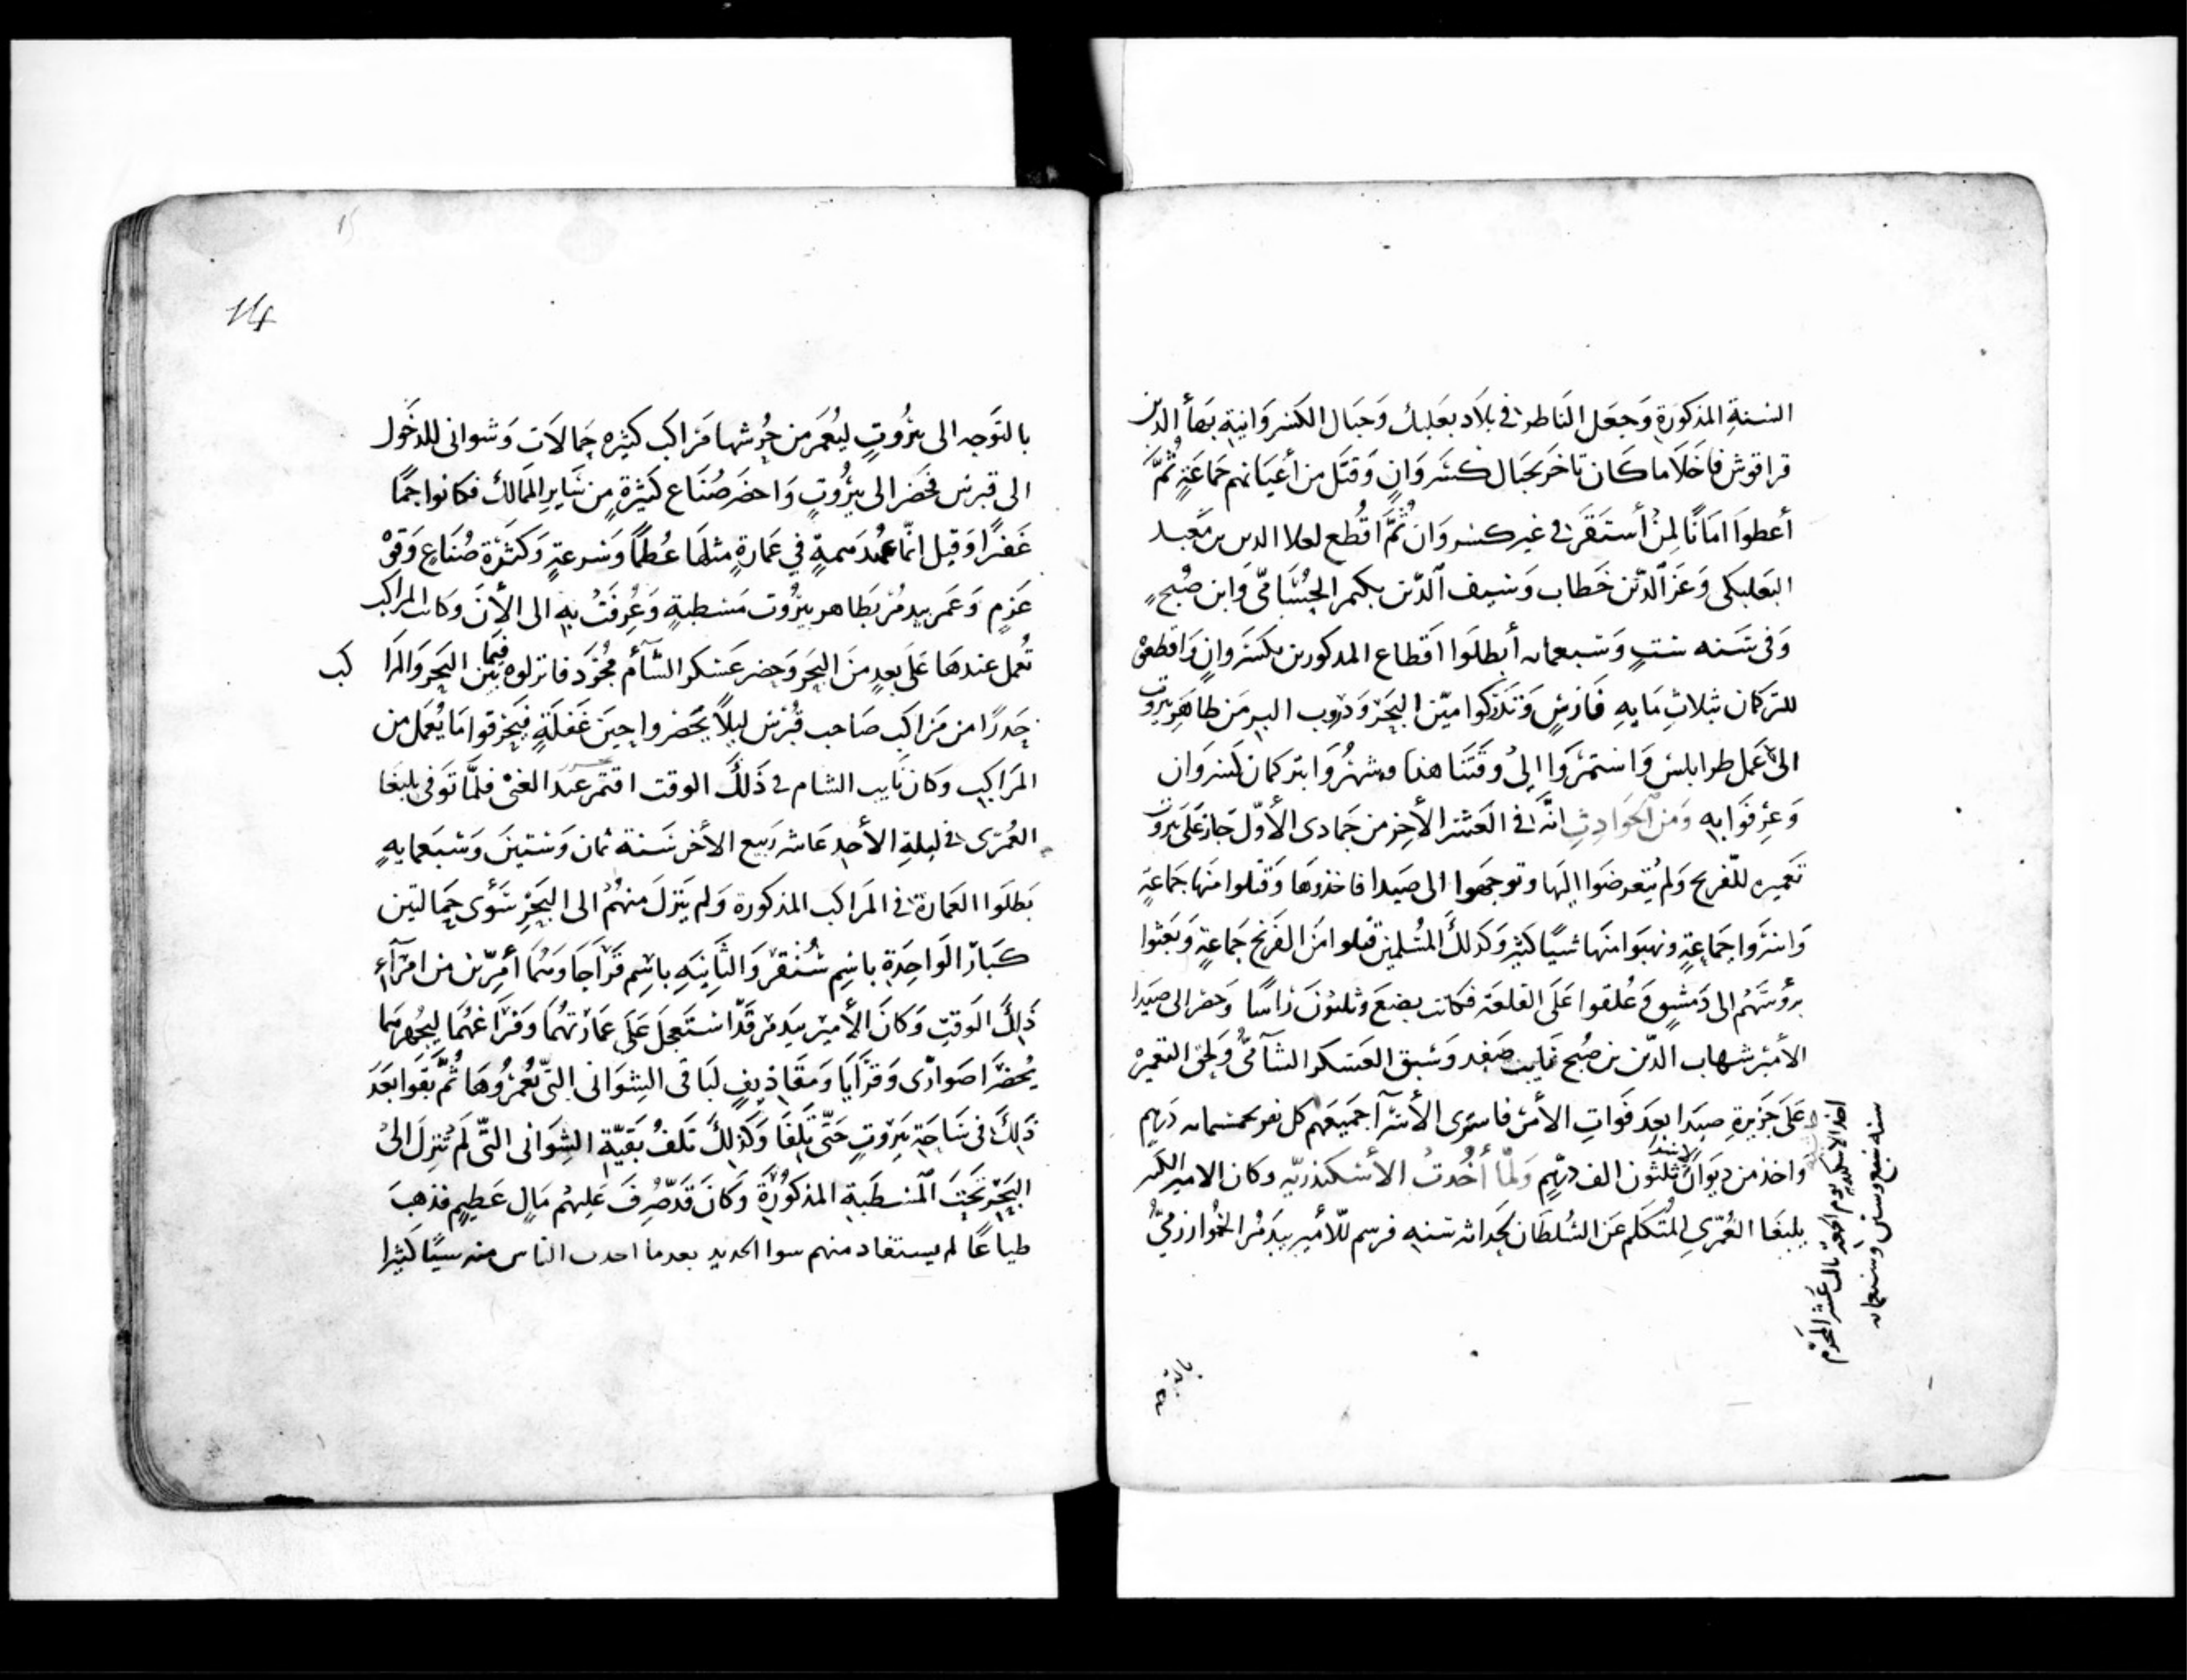 السنة المذكورة وجعل الناظر في بلاد بعلبك وجبال الكسروانية بهأ الدين
قراقوش فاخلا ما كان تاخر بجبال كسروان وقتل من أعيانهم جماعة ثم
أعطوا امانا لمن أستقر في غير كسروان ثم اقطع لعلا الدين بن معبد
البعلبكى وعز الدين خطاب وسيف الدين بكتمر الحسامى وابن صبح
وفى سنه ست وسبعمايه أبطلوا اقطاع المذكورين بكسروان واقطعوه
للتركمان بثلاث مايه فارس وتدركوا مين البحر ودروب البر من ظاهر بيروت
الى عمل طرابلس واستمروا الى وقتنا هذا وشهروا بتركمان كسروان
وعرفوا به ومن الحوادث انه فى العشر الأخر من جمادى الأول جاز على بيروت
تعميره للفرنج ولم يتعرضوا اليها وتوجهوا الى صيدا فاخذوها وقتلوا منها جماعة
واسروا جماعة ونهبوا منها شيا كثير وكذلك المسلمين قتلوا من الفرنج جماعة وبعثوا
برؤسهم الى دمشق وعلقوا على القلعة فكانت بضع وثلثون راسا وحضر الى صيدا
الأمير شهاب الدين بن صبح نايب صفد وسبق العسكر الشآمى ولحق التعميره
على جزيرة صيدا بعد فوات الأمر فاشترى الأسرآ جميعهم كل نفر بخمسمايه درهم
واخذ من ديوان الاسرى ثلثون الف درهم ولما أخدت الأسكندريه وكان الامير الكبير
يلبغا العمرى المتكلم عن السلطان لحداثه سنه فرسم للأمير بيدمر الخوارزمى
اخذ الاسكندريه يوم الجمعة ثالث عشر المحرم
سنه سبع وستين وسبعمايه
بالتوجه
14
بالتوجه الى بيروت ليعمر من حرشها مراكب كثيره حمالات وشوانى للدخول
الى قبرس فحضر الى بيروت واحضر صناع كثيرة من ساير الممالك فكانوا جما
غفيرا وقيل انما عهد همة في عمارة مثلها عظما وسرعة وكثرة صناع وقوة
عزم وعمر بيدمر بظاهر بيروت مسطبة وعرفت به الى الأن وكانت المراكب
تعمل عندها على بعد من البحر وحضر عسكر الشآم مجرد فانزلوه فيما بين البحر والمراكب
حدرا من مراكب صاحب قبرس ليلا يحضروا حين غفلة فيحرقوا ما يعمل من
المراكب وكان نايب الشام فى ذلك الوقت اقتمر عبد الغنى فلما توفى يلبغا
العمرى فى ليلة الأحد عاشر ربيع الأخر سنة ثمان وستين وسبعمايه
بطلوا العمارة فى المراكب المذكورة ولم ينزل منهم الى البحر سوى حمالتين
كبار الواحدة باسم سنقر والثانيه باسم قراجا وهما أميرين من امرآء
ذلك الوقت وكان الأمير بيدمر قد استعجل على عمارتهما وفراغهما ليجهرهما
يحضرا صوارى وقرايا ومقاذيف لباقى الشوانى التى يعمروها ثم بقوا بعد
ذلك فى ساحة بيروت حتى تلفا وكذلك تلف بقية الشوانى التى لم تنزل الى
البحر تحت المسطبة المذكورة وكان قد صرف عليهم مال عظيم فذهب
ضياعا لم يستفاد منهم سوا الحديد بعدما احدت الناس منه سيا كثيرا